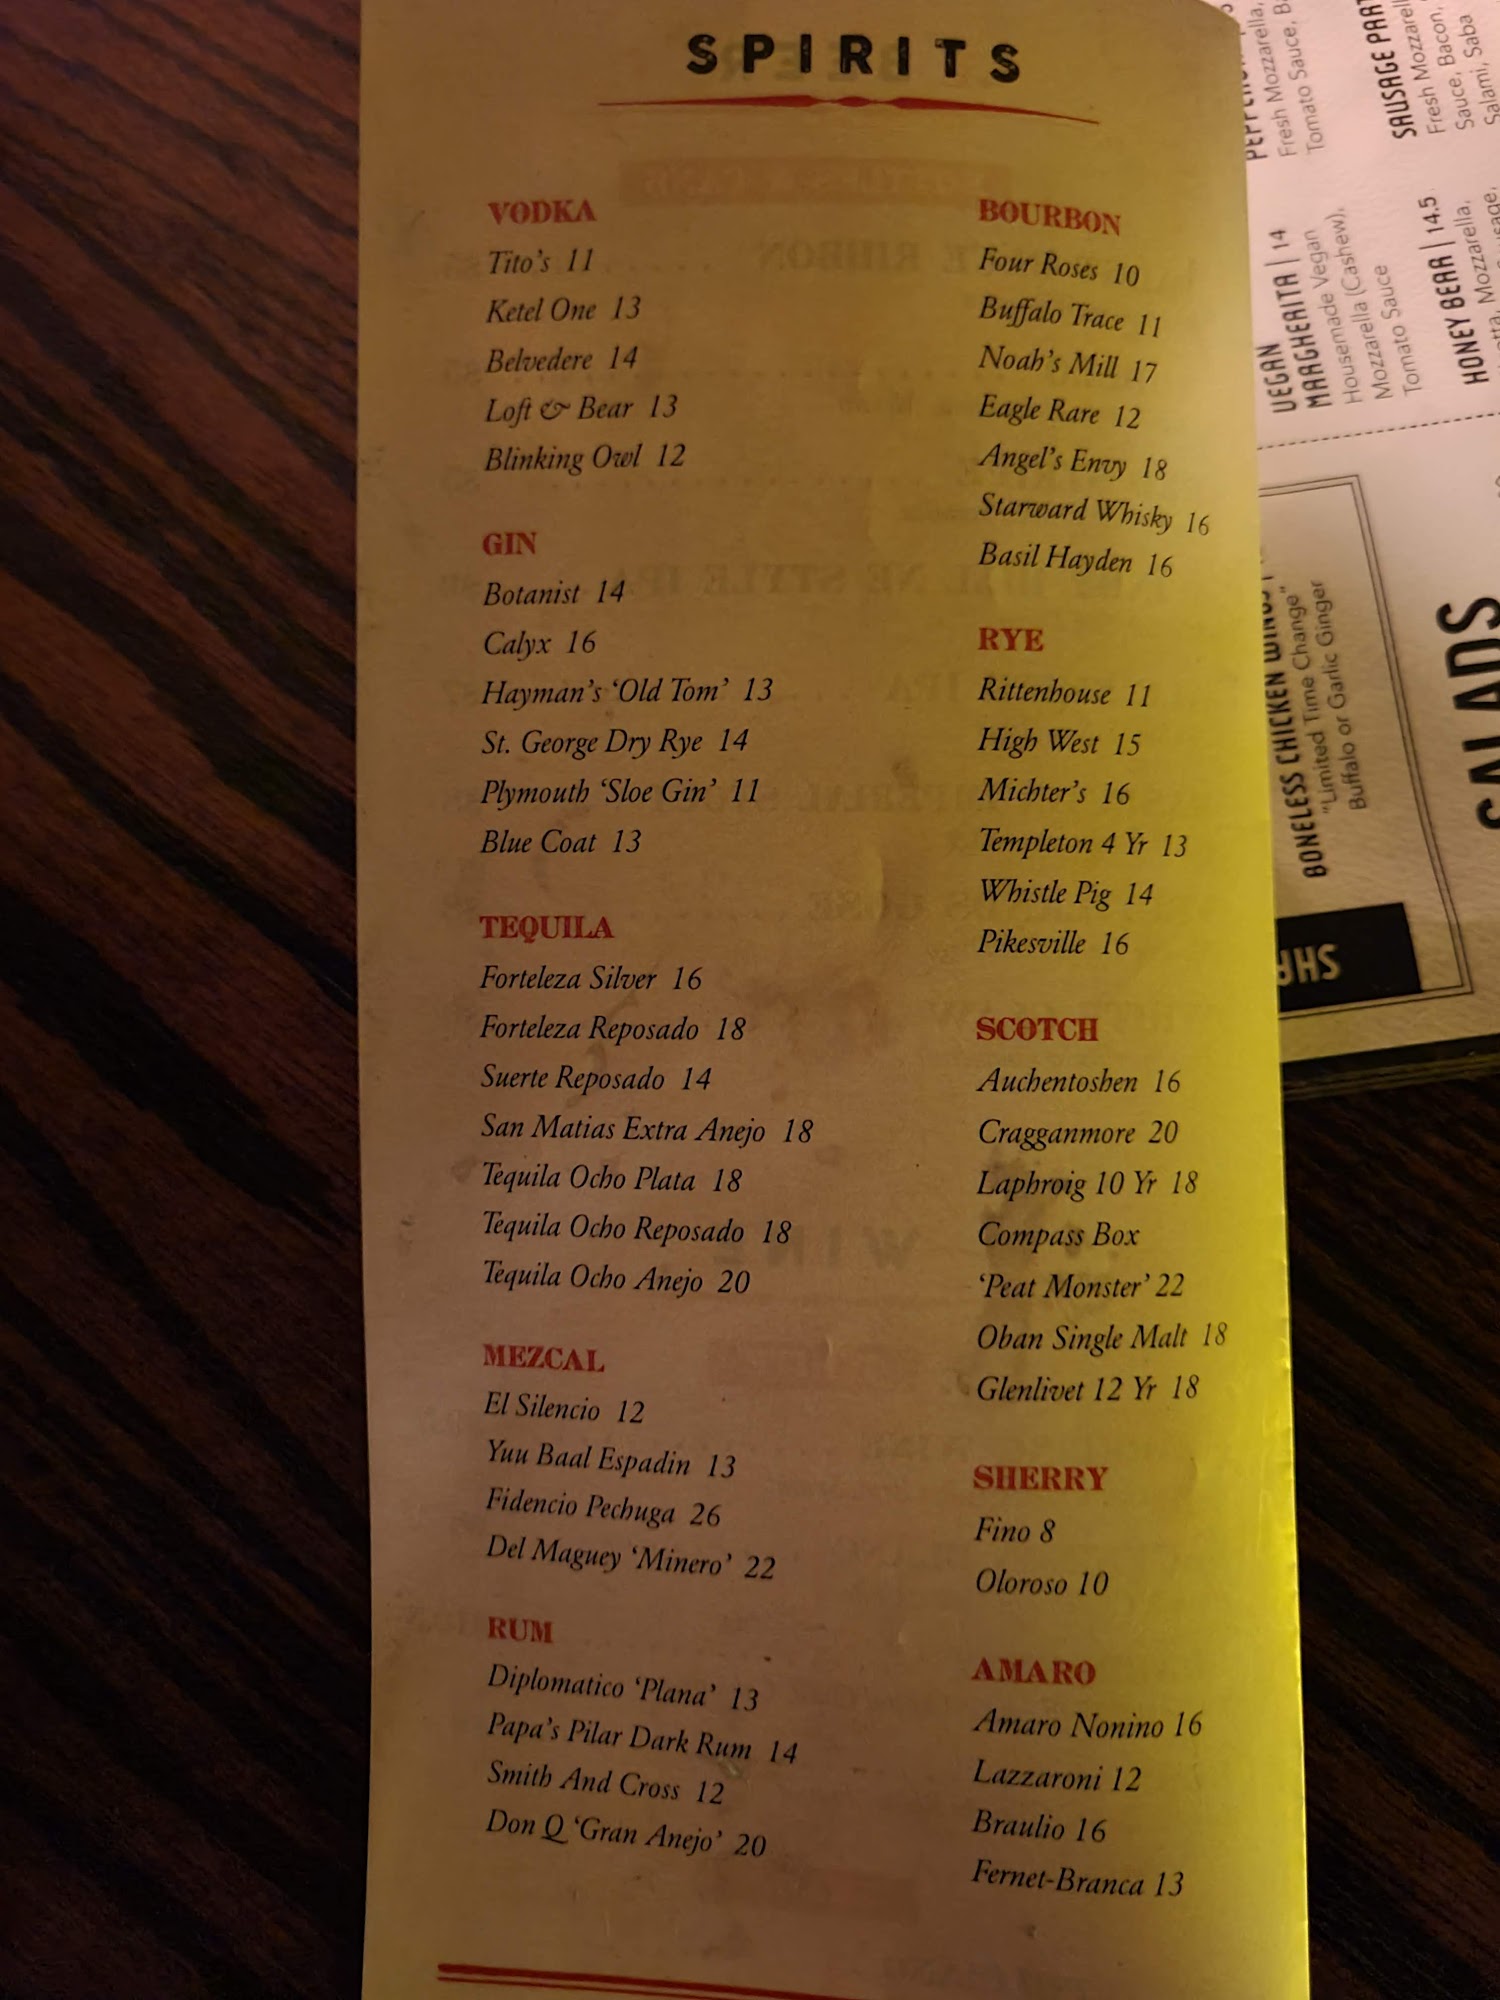 SPIRITS
VODKA
Tito's 11
Ketel One 13
Belvedere 14
Loft & Bear 13
Blinking Owl 12
GIN
Botanist 14
Calyx 16
Hayman's 'Old Tom' 13
St. George Dry Rye 14
Plymouth 'Sloe Gin' 11
Blue Coat 13
TEQUILA
Forteleza Silver 16
Forteleza Reposado 18
Suerte Reposado 14
San Matias Extra Anejo 18
Tequila Ocho Plata 18
Tequila Ocho Reposado 18
Tequila Ocho Anejo 20
MEZCAL
El Silencio 12
Yuu Baal Espadin 13
Fidencio Pechuga 26
Del Maguey 'Minero' 22
RUM
Diplomatico 'Plana' 13
Papa's Pilar Dark Rum 14
Smith And Cross 12
Don Q 'Gran Anejo' 20
BOURBON
Four Roses 10
Buffalo Trace 11
Noah's Mill 17
Eagle Rare 12
Angel's Envy 18
Starward Whisky 16
Basil Hayden 16
RYE
Rittenhouse 11
High West 15
Michter's 16
Templeton 4 Yr 13
Whistle Pig 14
Pikesville 16
SCOTCH
Auchentoshen 16
Cragganmore 20
Laphroig 10 Yr 18
Compass Box
'Peat Monster' 22
Oban Single Malt 18
Glenlivet 12 Yr 18
SHERRY
Fino 8
Oloroso 10
AMARO
Amaro Nonino 16
Lazzaroni 12
Braulio 16
Fernet-Branca 13
Fresh Mozzarella,
Tomato Sauce,
SAUSAGE
Fresh
Sauce, Bacon,
Salami, Saba
VEGAN
MARGHERITA | 14
Housemade Vegan
Mozzarella (Cashew),
Tomato Sauce
HONEY BEAR | 14.5
Mozzarella,
BONELESS CHICKEN WINGS
"Limited Time Change"
Buffalo or Garlic Ginger
SALADS